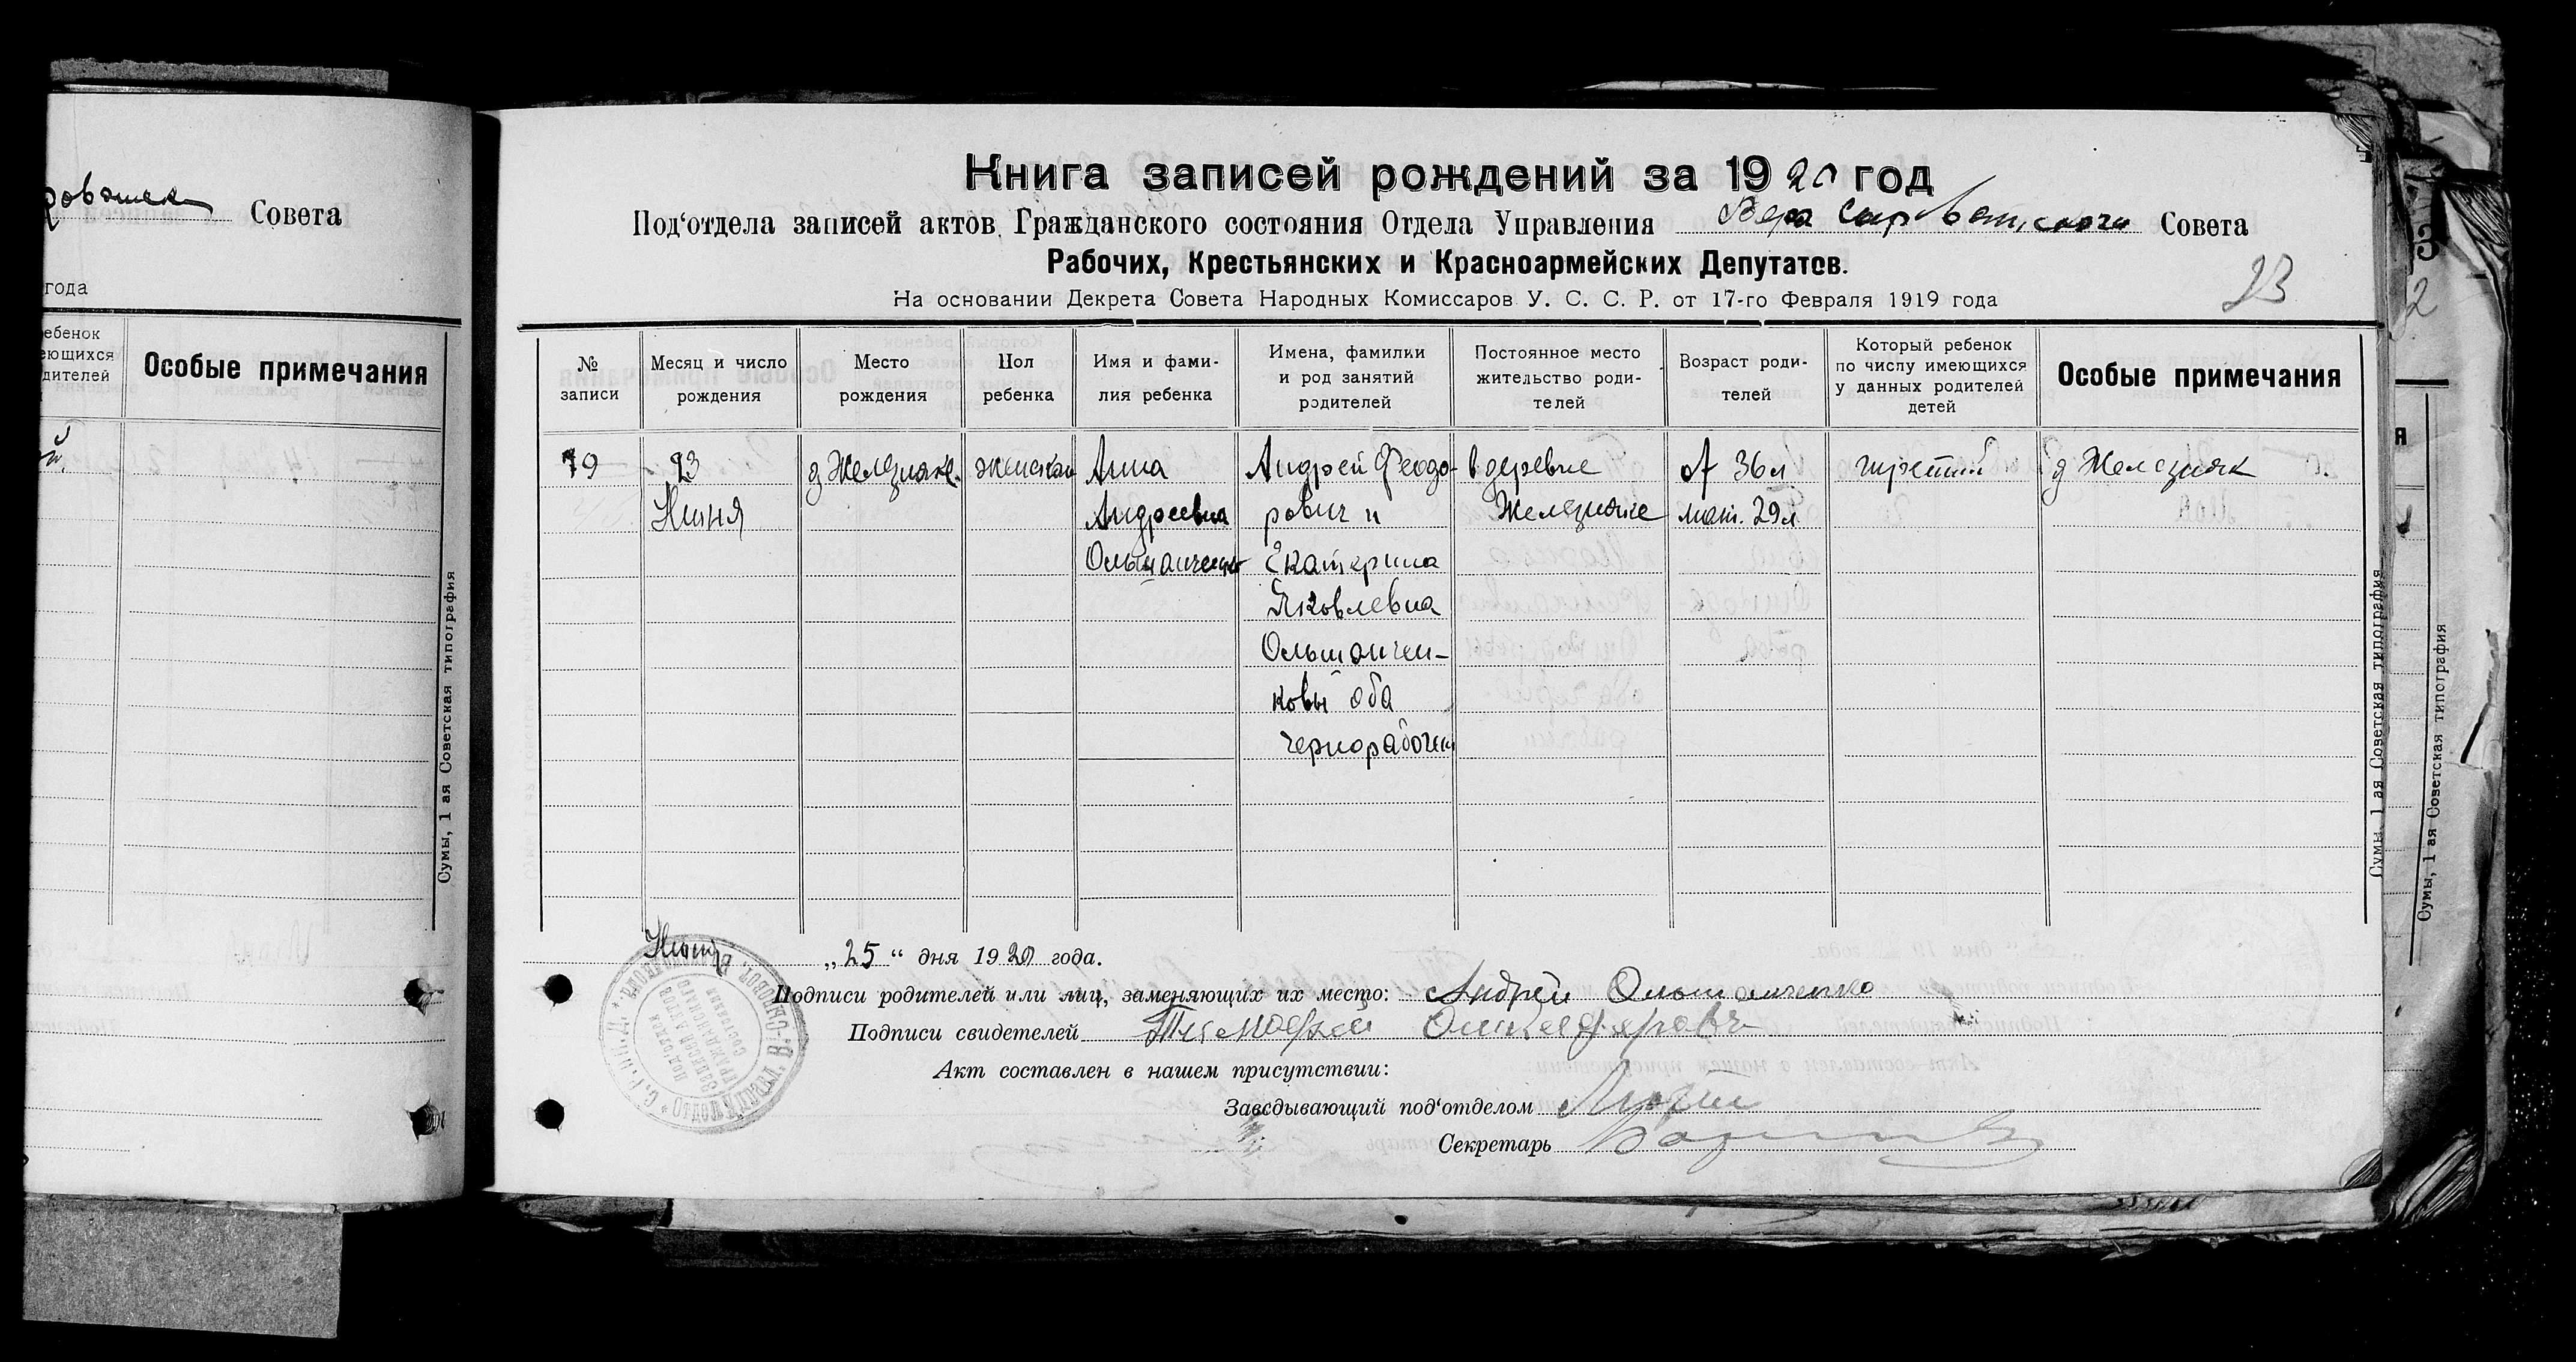 Совета
года
ебенок
еющихся
дителей
Особые примечания
й.
Сумы, 1 ая Советская типография
Книга записей рождений за 1920 год
Под‘отдела записей актов Гражданского состояния Отдела Управления Верх Сыроватского Совета
Рабочих, Крестьянских и Красноармейских Депутатов.
На основании Декрета Совета Народных Комиссаров У. С. С. Р. от 17-го Февраля 1919 года
23
№ записи
Месяц и число рождения
Место рождения
Пол ребенка
Имя и фами-
лия ребенка
Имена, фамилии
и род занятий
родителей
Постоянное место
жительство роди-
телей
Возраст роди-
телей
Который ребенок
по числу имеющихся
у данных родителей
детей
Особые примечания
79
23
Июня
д Железняк.
женская
Анна
Андреевна
Ольшанченко
Андрей Феодо-
рович и
Екатерина
Яковлевна
Ольшанчен-
ковы оба
чернорабочие
в деревне
Железняке
от 36 л
мат. 29 л
третий
д Железняк
Сумы, 1 ая Советская типография
Сумы, 1 ая Советская типография
Июня „25“ дня 1920 года.
Подписи родителей или лиц, заменяющих их место: Андрей Ольшанченко
Подписи свидетелей Тимофей
Акт составлен в нашем присутствии:
Заведывающий под‘отделом
Секретарь